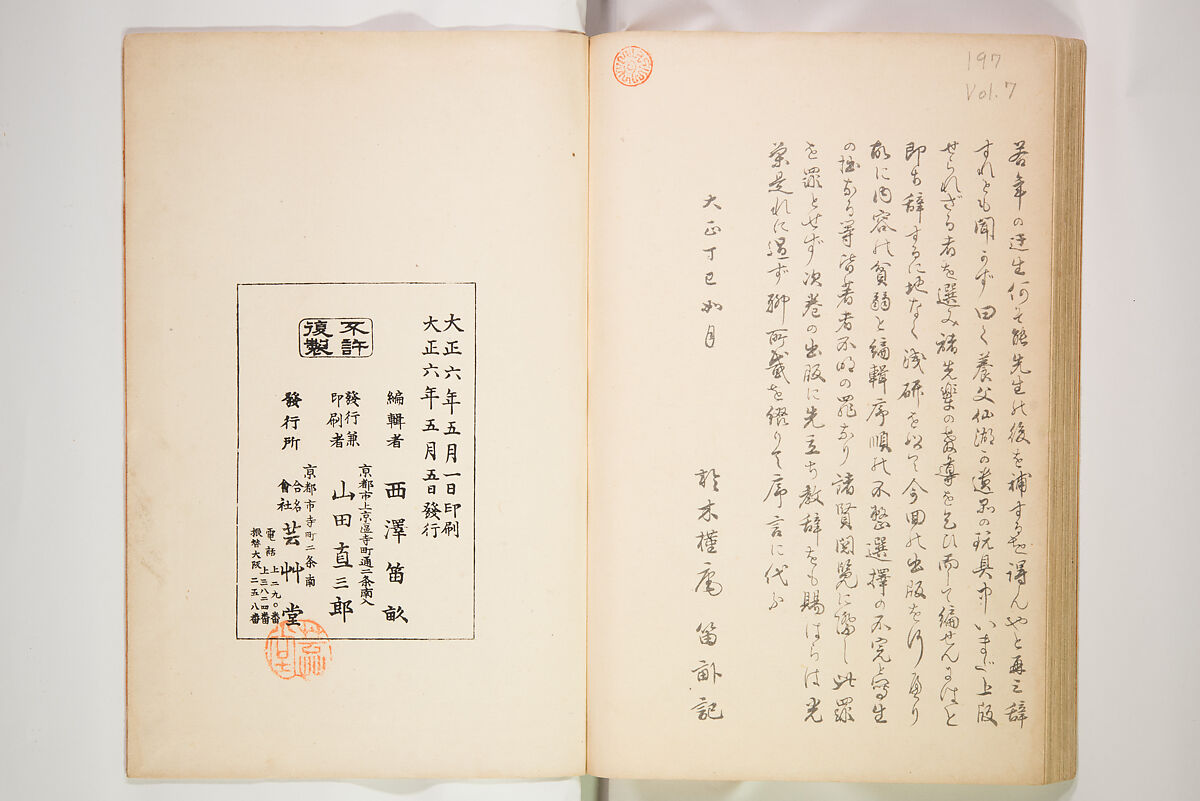 197
Vol. 7
若年の迂生何そ能先生の後を補するを得んやと再三辞
すれとも聞かず曰く養父仙湖が遺品の玩具中いまだ上版
せられざる者を選み諸先輩の教導を乞ひ而て編せんにはと
即ち辞するに地なく浅研を以て今回の出版を行へり
故に内容の貧弱と編輯序順の不整選擇の不完と寫生
の拙なる等皆著者不明の罪なり諸賢閲覧に際し此罪
を罪とせず次巻の出版に先立ち教辞をも賜はらは光
榮是れに過ず聊所感を綴りて序言に代ふ
大正丁巳如月
於木槿庵 笛畝記
大正六年五月一日印刷
大正六年五月五日發行
不許
復製
編輯者 西澤笛畝
京都市上京區寺町通二条南入
發行兼
印刷者 山田直三郎
京都市寺町二条南
發行所 合名會社 芸艸堂
電話 上二九〇番
上三八二四番
振替大阪 二五八番